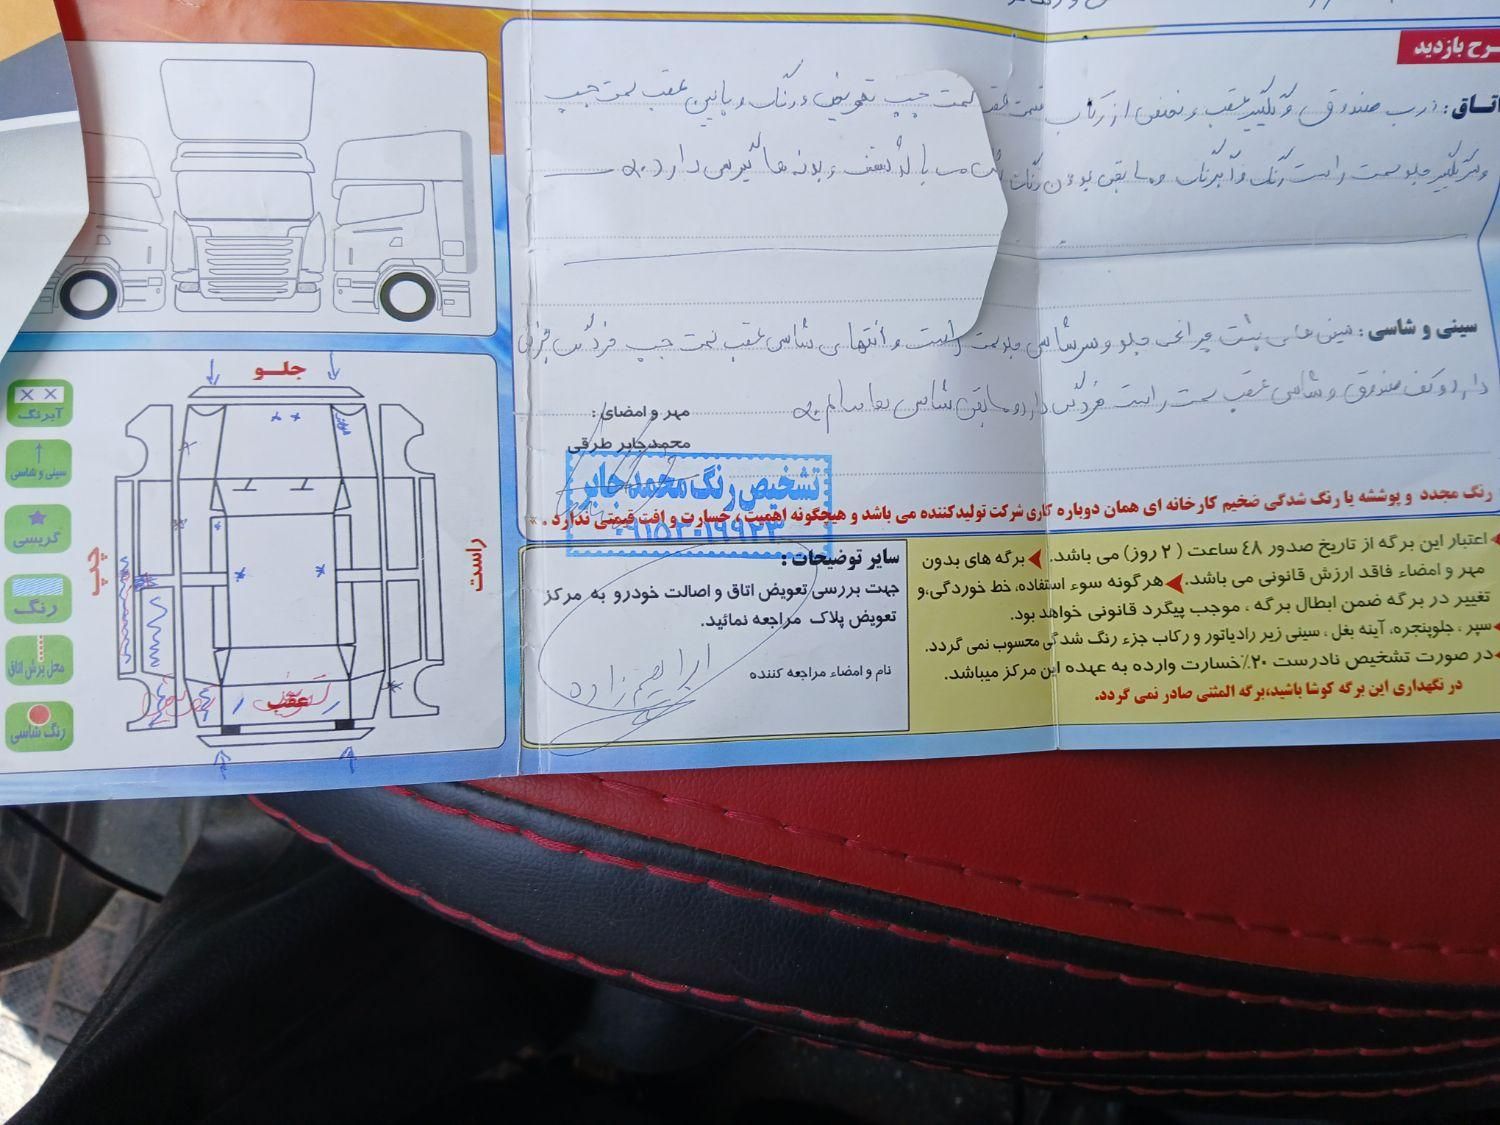 شرح بازدید
اتاق : درب صندوق و گلگیر عقب و بخشی از رکاب قسمت عقب سمت چپ تعویض و رنگ و پایین عقب سمت چپ
و گلگیر جلو سمت راست رنگ و آبرنگ و مابقی بدون رنگ می باشد سقف و بدنه ها گریس دارد
سینی و شاسی : سینی های پشت چراغ جلو و سرشاسی جلو سمت راست و انتهای شاسی عقب سمت چپ خوردگی جزئی
دارد و کف صندوق و شاسی عقب سمت راست خوردگی دارد مابقی شاسی ها سالم
مهر و امضای :
محمدجابر طرقی
تشخیص رنگ محمد جابر
۰۹۱۵۲۰۱۹۹۲۳
رنگ مجدد و پوششه یا رنگ شدگی ضخیم کارخانه ای همان دوباره کاری شرکت تولیدکننده می باشد و هیچگونه اهمیت ، خسارت و افت قیمتی ندارد .
سایر توضیحات :
جهت بررسی تعویض اتاق و اصالت خودرو به مرکز
تعویض پلاک مراجعه نمائید.
نام و امضاء مراجعه کننده
ابراهیم زاده
اعتبار این برگه از تاریخ صدور ٤٨ ساعت ( ٢ روز) می باشد. برگه های بدون
مهر و امضاء فاقد ارزش قانونی می باشد. هر گونه سوء استفاده، خط خوردگی،و
تغییر در برگه ضمن ابطال برگه ، موجب پیگرد قانونی خواهد بود.
سپر ، جلوپنجره، آینه بغل ، سینی زیر رادیاتور و رکاب جزء رنگ شدگی محسوب نمی گردد.
در صورت تشخیص نادرست ۲۰٪خسارت وارده به عهده این مرکز میباشد.
در نگهداری این برگه کوشا باشید،برگه المثنی صادر نمی گردد.
جلـو
راست
چپ
عقب
تعویض
آبرنگ
سینی و شاسی
گریسی
رنگ
محل برش اتاق
رنگ شاسی